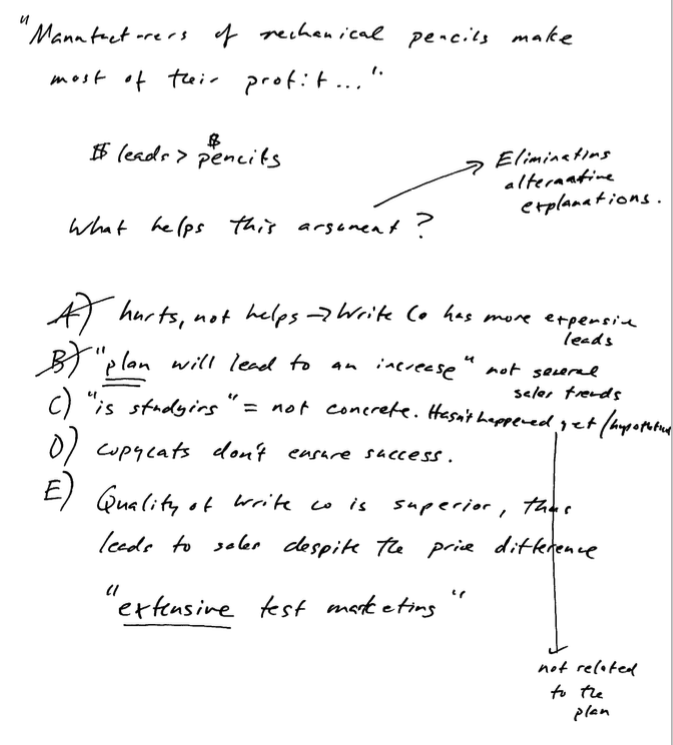 "Manufacturers of mechanical pencils make
most of their profit...".
$ leads > $ pencils
Eliminating
alternative
explanations.
What helps this argument?
A) hurts, not helps → Write Co has more expensive
leads
B) "plan will lead to an increase" not several
sales trends
C) "is studying" = not concrete. Hasn't happened yet/hypothetical
D) copycats don't ensure success.
E) Quality of Write Co is superior, thus
leads to sales despite the price difference
"extensive test marketing"
not related
to the
plan